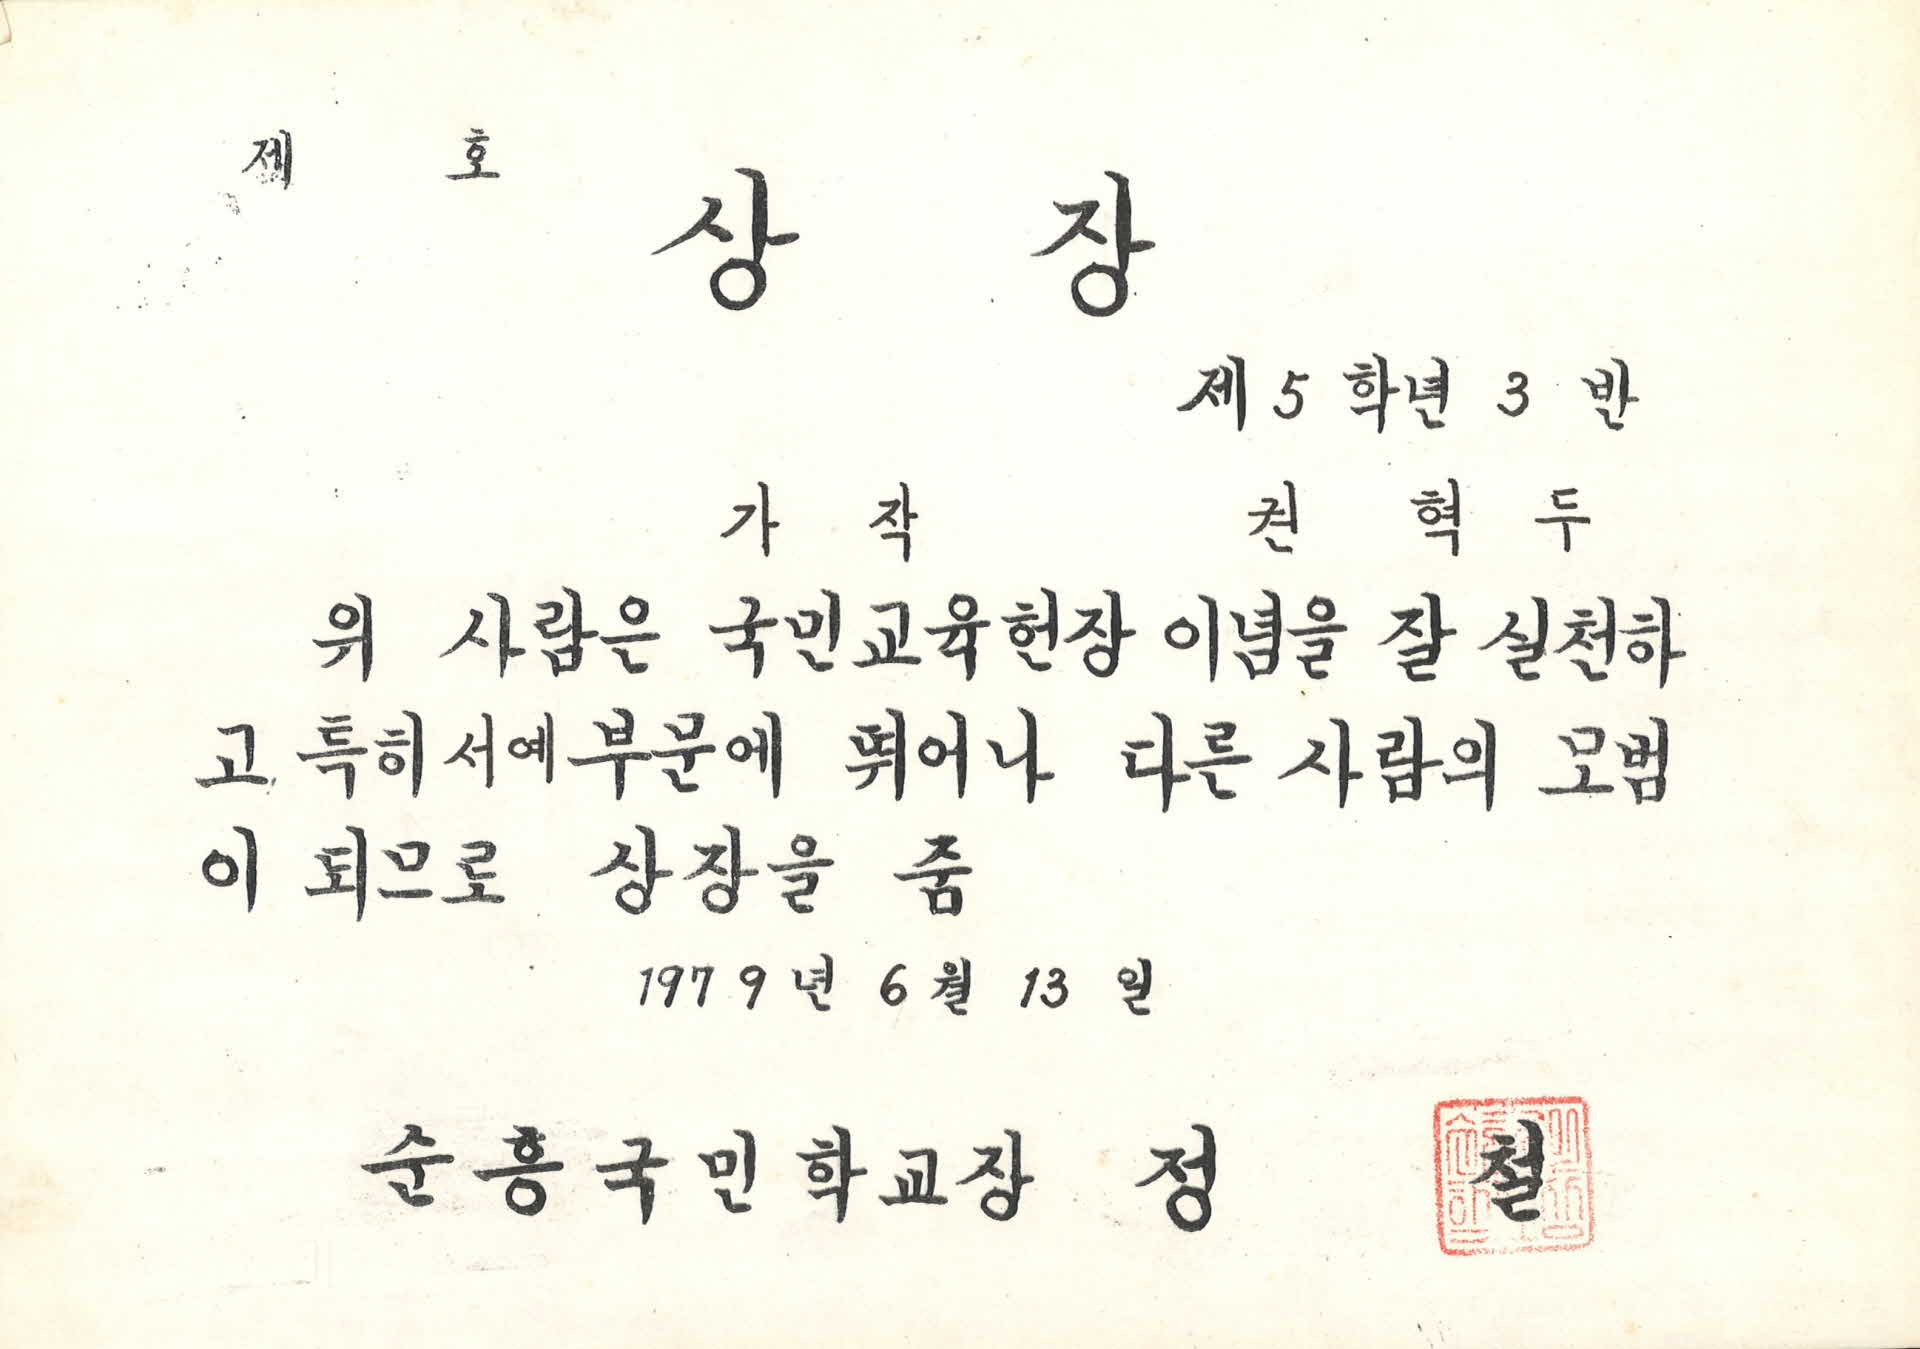 제 호
상 장
제 5 학년 3 반
가 작 권 혁 두
위 사람은 국민교육헌장 이념을 잘 실천하
고 특히 서예부문에 뛰어나 다른 사람의 모범
이 되므로 상장을 줌
1979년 6월 13일
순흥국민학교장 정 철